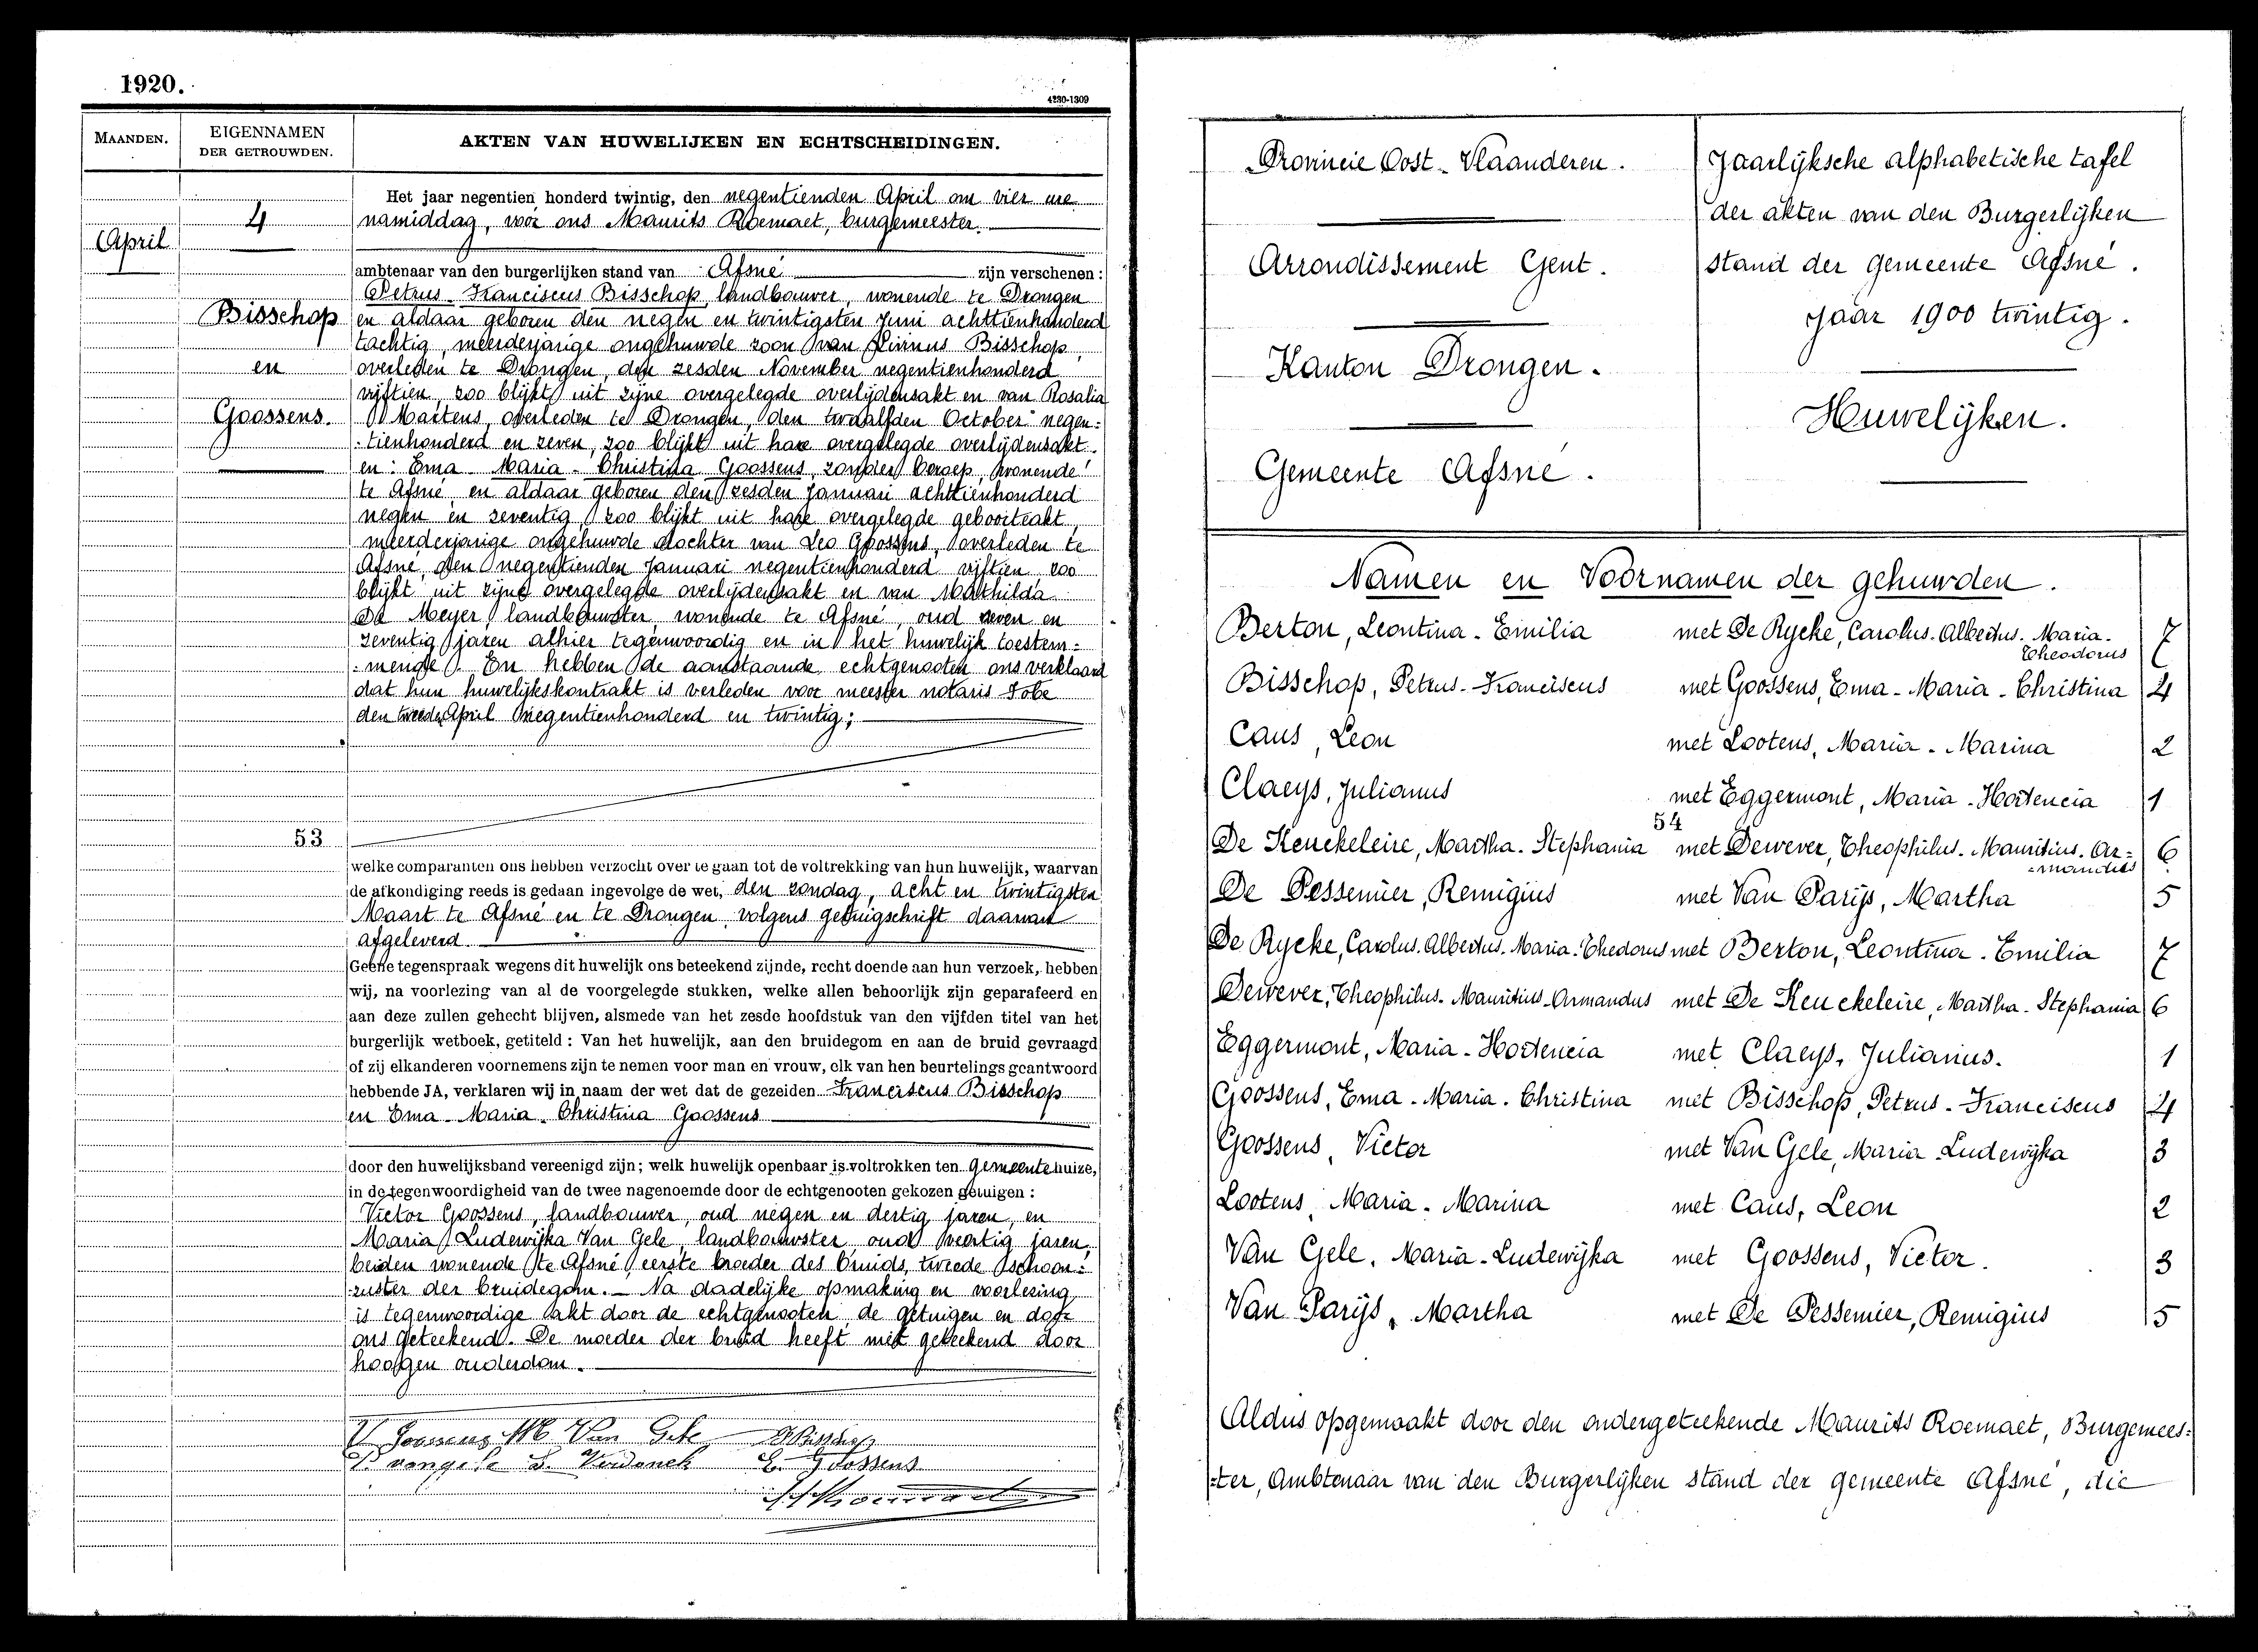 1920.
4280-1309
MAANDEN.
EIGENNAMEN
DER GETROUWDEN.
AKTEN VAN HUWELIJKEN EN ECHTSCHEIDINGEN.
April
4
Bisschop
en
Goossens.
53
Het jaar negentien honderd twintig, den negentienden April om vier ure
namiddag, voor ons Maurits Roemaet, burgemeester.
ambtenaar van den burgerlijken stand van Afsné zijn verschenen:
Petrus-Franciscus Bisschop, landbouwer, wonende te Drongen
en aldaar geboren den negen en twintigsten Juni achttienhonderd
tachtig, meerderjarige ongehuwde zoon van Livinus Bisschop,
overleden te Drongen, den zesden November negentienhonderd
vijftien, zoo blijkt uit zijne overgelegde overlijdensakt en van Rosalia
Martens, overleden te Drongen, den twaalfden October negen:
:tienhonderd en zeven, zoo blijkt uit hare overgelegde overlijdensakt
en: Ema-Maria-Christina Goossens, zonder beroep, wonende
te Afsné, en aldaar geboren den zesden Januari achttienhonderd
negen en zeventig, zoo blijkt uit hare overgelegde geboorteakt,
meerderjarige ongehuwde dochter van Leo Goossens, overleden te
Afsné, den negentienden Januari negentienhonderd vijftien zoo
blijkt uit zijne overgelegde overlijdensakt en van Mathilda
De Meyer, landbouwster, wonende te Afsné, oud zeven en
zeventig jaren alhier tegenwoordig en in het huwelijk toestem:
:mende. En hebben de aanstaande echtgenooten ons verklaard
dat hun huwelijkskontrakt is verleden voor meester notaris Fobe
den tweeden April negentienhonderd en twintig;
welke comparanten ons hebben verzocht over te gaan tot de voltrekking van hun huwelijk, waarvan
de afkondiging reeds is gedaan ingevolge de wet, den zondag, acht en twintigsten
Maart te Afsné en te Drongen, volgens getuigschrift daarvan
afgeleverd.
Geene tegenspraak wegens dit huwelijk ons beteekend zijnde, recht doende aan hun verzoek, hebben
wij, na voorlezing van al de voorgelegde stukken, welke allen behoorlijk zijn geparafeerd en
aan deze zullen gehecht blijven, alsmede van het zesde hoofdstuk van den vijfden titel van het
burgerlijk wetboek, getiteld: Van het huwelijk, aan den bruidegom en aan de bruid gevraagd
of zij elkanderen voornemens zijn te nemen voor man en vrouw, elk van hen beurtelings geantwoord
hebbende JA, verklaren wij in naam der wet dat de gezeiden Franciscus Bisschop
en Ema-Maria-Christina Goossens
door den huwelijksband vereenigd zijn; welk huwelijk openbaar is voltrokken ten gemeentehuize,
in de tegenwoordigheid van de twee nagenoemde door de echtgenooten gekozen getuigen:
Victor Goossens, landbouwer, oud negen en dertig jaren, en
Maria Ludewijka Van Gele, landbouwster, oud veertig jaren,
beiden wonende te Afsné, eerste broeder des bruids, tweede schoon:
:zuster der bruidegom. Na dadelijke opmaking en voorlezing
is tegenwoordige akt door de echtgenooten, de getuigen en door
ons geteekend. De moeder der bruid heeft niet geteekend door
hoogen ouderdom.
V Goossens M Van Gele P Bisschop
P. vangele S. Verdonck E. Goossens
Provincie Oost-Vlaanderen.
Arrondissement Gent.
Kanton Drongen.
Gemeente Afsné.
Jaarlijksche alphabetische tafel
der akten van den Burgerlijken
stand der gemeente Afsné.
Jaar 1900 twintig.
Huwelijken.
Namen en Voornamen der gehuwden.
Berton, Leontina-Emilia met De Rycke, Carolus-Albertus-Maria- 7
Theodorus
Bisschop, Petrus-Franciscus met Goossens, Ema-Maria-Christina 4
Caus, Leon met Lootens, Maria-Marina 2
Claeys, Julianus met Eggermont, Maria-Hortencia 1
54
De Keuckeleire, Martha-Stephania met Dewever, Theophilus-Mauritius-Ar= 6
=mandus
De Pessemier, Remigius met Van Parijs, Martha 5
De Rycke, Carolus-Albertus-Maria-Thedorus met Berton, Leontina-Emilia 7
Dewever, Theophilus-Mauritius-Armandus met De Keuckeleire, Martha-Stephania 6
Eggermont, Maria-Hortencia met Claeys, Julianus. 1
Goossens, Ema-Maria-Christina met Bisschop, Petrus-Franciscus 4
Goossens, Victor met Van Gele, Maria Ludewijka 3
Lootens, Maria-Marina met Caus, Leon 2
Van Gele, Maria-Ludewijka met Goossens, Victor. 3
Van Parijs, Martha met De Pessemier, Remigius 5
Aldus opgemaakt door den ondergeteekende Maurits Roemaet, Burgemees=
=ter, Ambtenaar van den Burgerlijken stand der gemeente Afsné, die